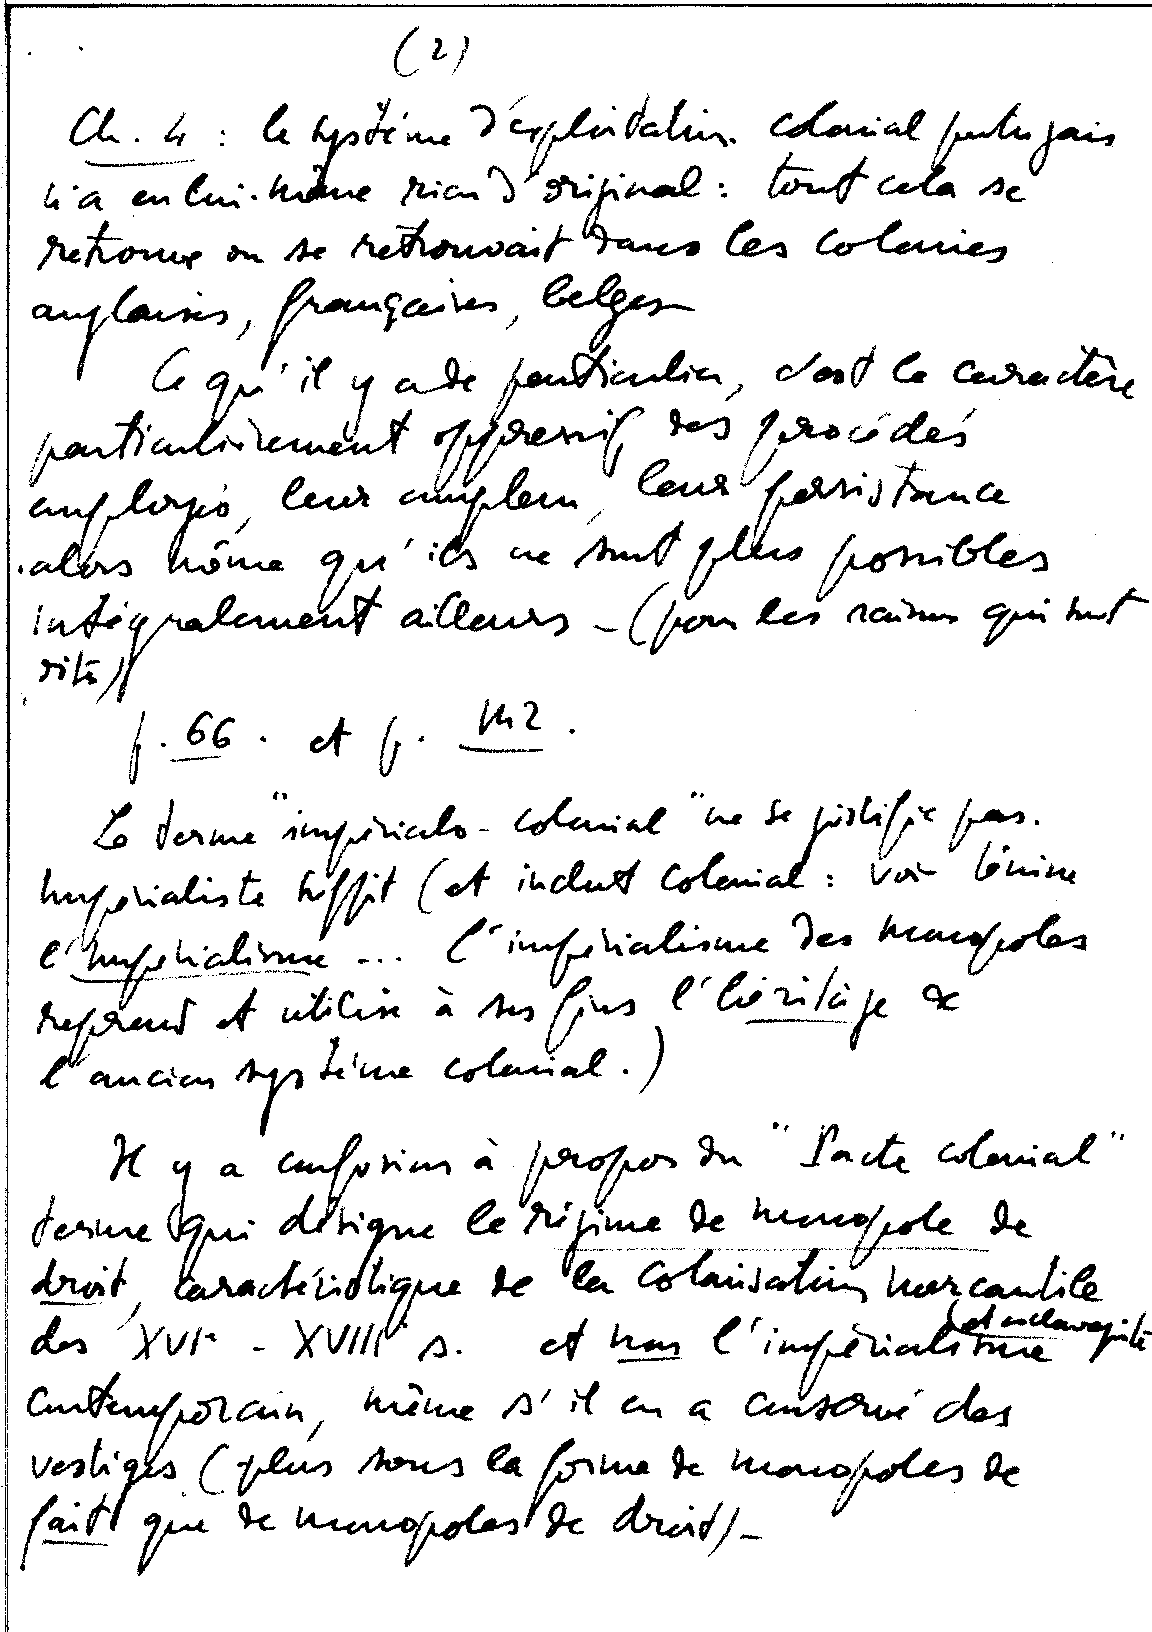 (2)
Ch. 4 : le système d'exploitation colonial portugais
n'a en lui-même rien d'original : tout cela se
retrouve ou se retrouvait dans les colonies
anglaises, françaises, belges
Ce qu'il y a de particulier, c'est le caractère
particulièrement oppressif des procédés
employés, leur ampleur, leur persistance
alors même qu'ils ne sont plus possibles
intégralement ailleurs - (pour les raisons qui sont
dites)
p. 66 . et p. 112 .
Le terme "impérialo-colonial" ne se justifie pas.
Impérialiste suffit (et inclut colonial : voir Lénine
l'Impérialisme ... l'impérialisme des monopoles
reprend et utilise à ses fins l'héritage de
l'ancien système colonial.)
Il y a confusion à propos du "Pacte colonial"
terme qui désigne le régime de monopole de
droit, caractéristique de la colonisation mercantile
(et esclavagiste
des XVIe - XVIIIe s. et non l'impérialisme
contemporain, même s'il en a conservé des
vestiges (plus sous la forme de monopoles de
fait que de monopoles de droit) -